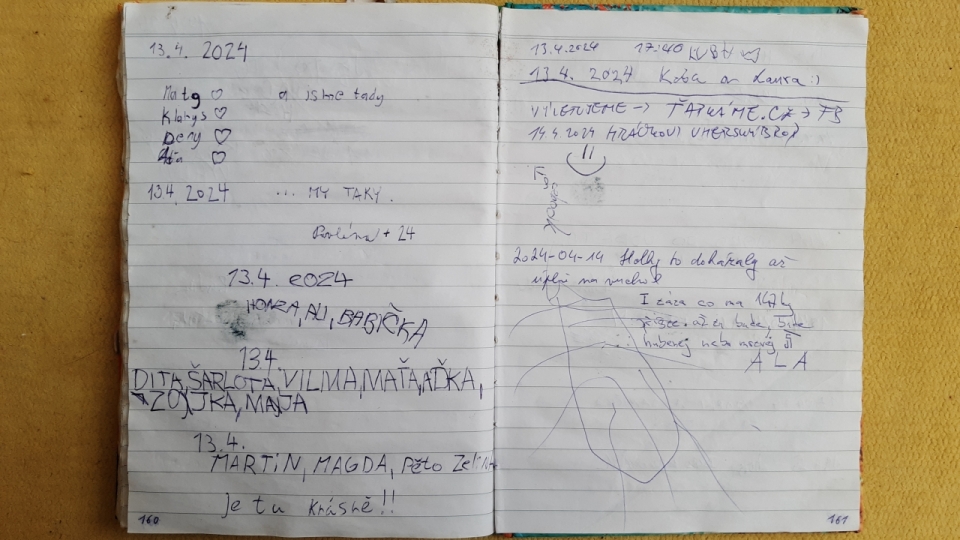 13.4. 2024
Maty ♡ a jsme tady
♡
Deny ♡
♡
13.4. 2024 ... MY TAKY.
Pavlína + 24
13.4. 2024
HONZA, ALI, BABIČKA
13.4.
DITA, ŠARLOTA, VILMA, MAŤA, AĎKA,
ZOJKA, MAJA
13.4.
MARTIN, MAGDA, Péťo
je tu krásně!!
160
13.4.2024 17:40 KUBA
13.4. 2024 Kuba a Laura :)
VÝLETUJEME -> ŤAPKÁME.CZ -> FB
14.4.2024 HRÁČKOVI UHERSKÝ BROD
2024-04-14 Holky to dokázaly až
úplně na vrchol
I táta co má 147kg
příště až bude
hubenej nebo mrtvej
ALA
161